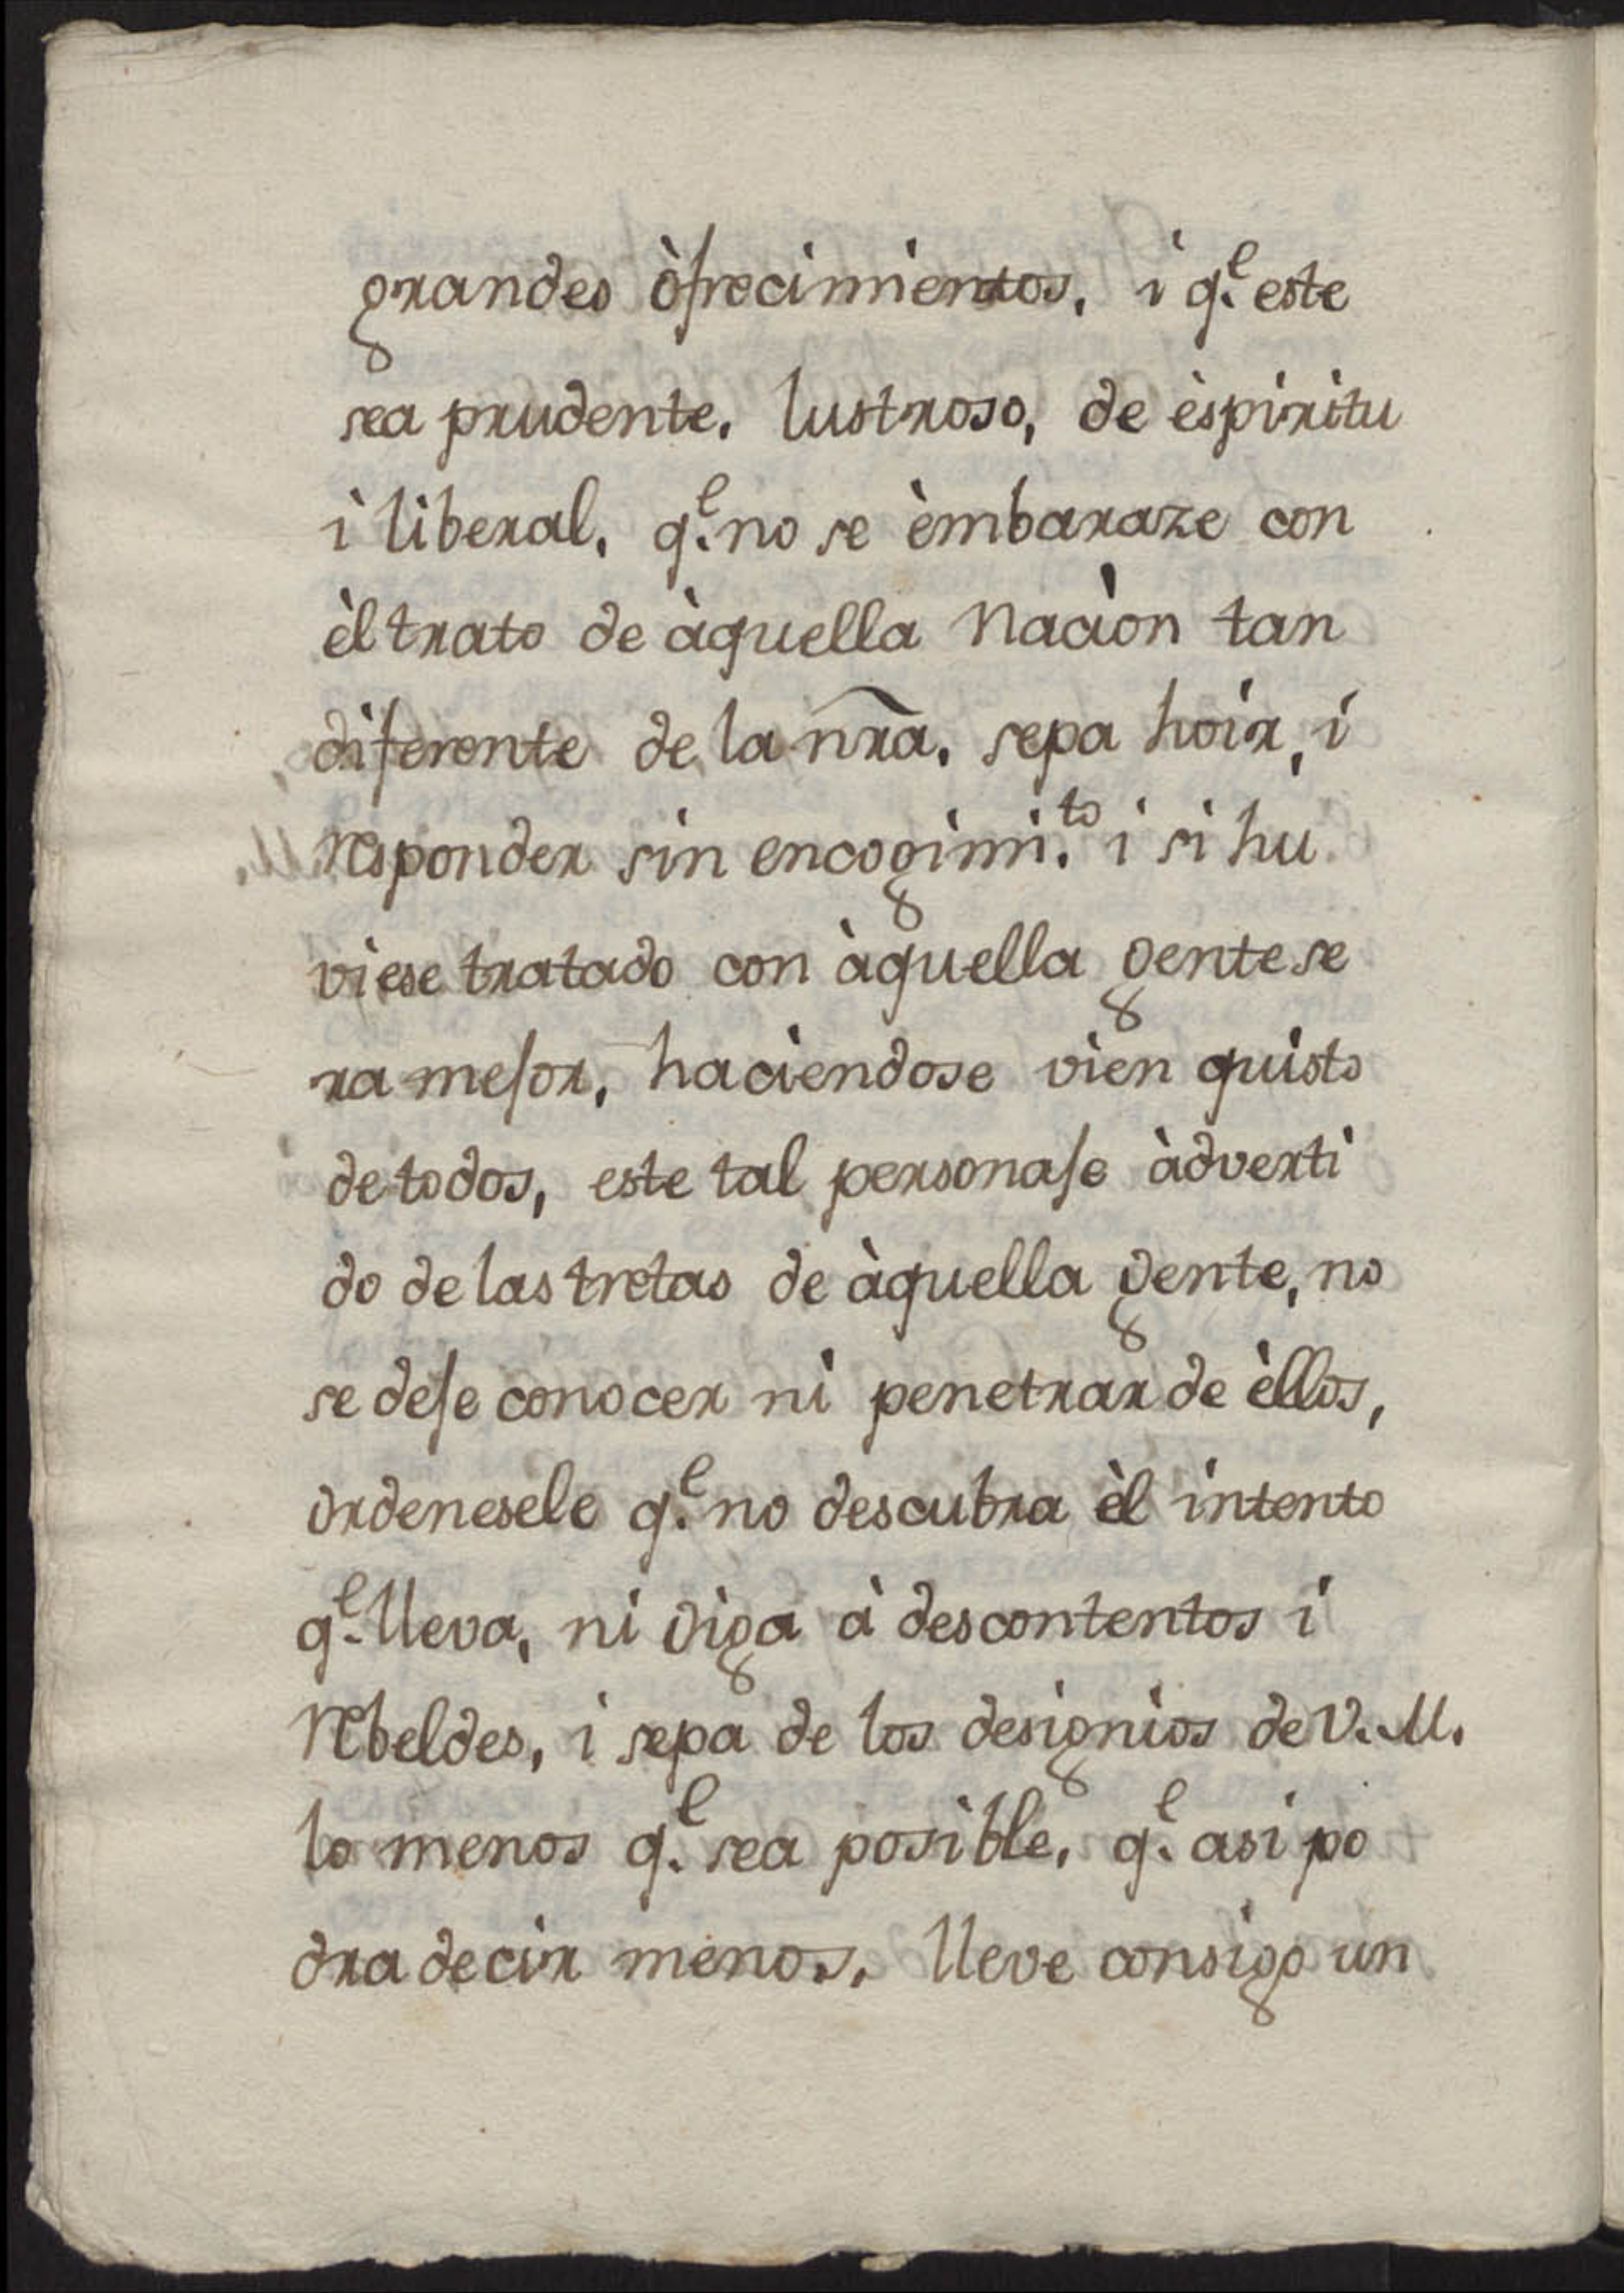 grandes òfrecimientos, i q.^e este
sea prudente, lustroso, de èspiritu
ì liberal, q.^e no se èmbaraze con
èl trato de àquella Naciòn tan
diferente de la nr̃a, sepa hoir, i
responder sin encogimi.^to i si hu
viese tratado con àquella gente se
ra mejor, haciendose vien quisto
de todos, este tal personaje àdverti
do de las tretas de àquella gente, no
se deje conocer ni penetrar de èllos,
ordenesele q.^e no descubra èl intento
q.^e lleva, ni diga à descontentos i
rebeldes, i sepa de los designios de V. M.
lo menos q.^e sea posible, q.^e asi po
dra decir menos, lleve consigo un